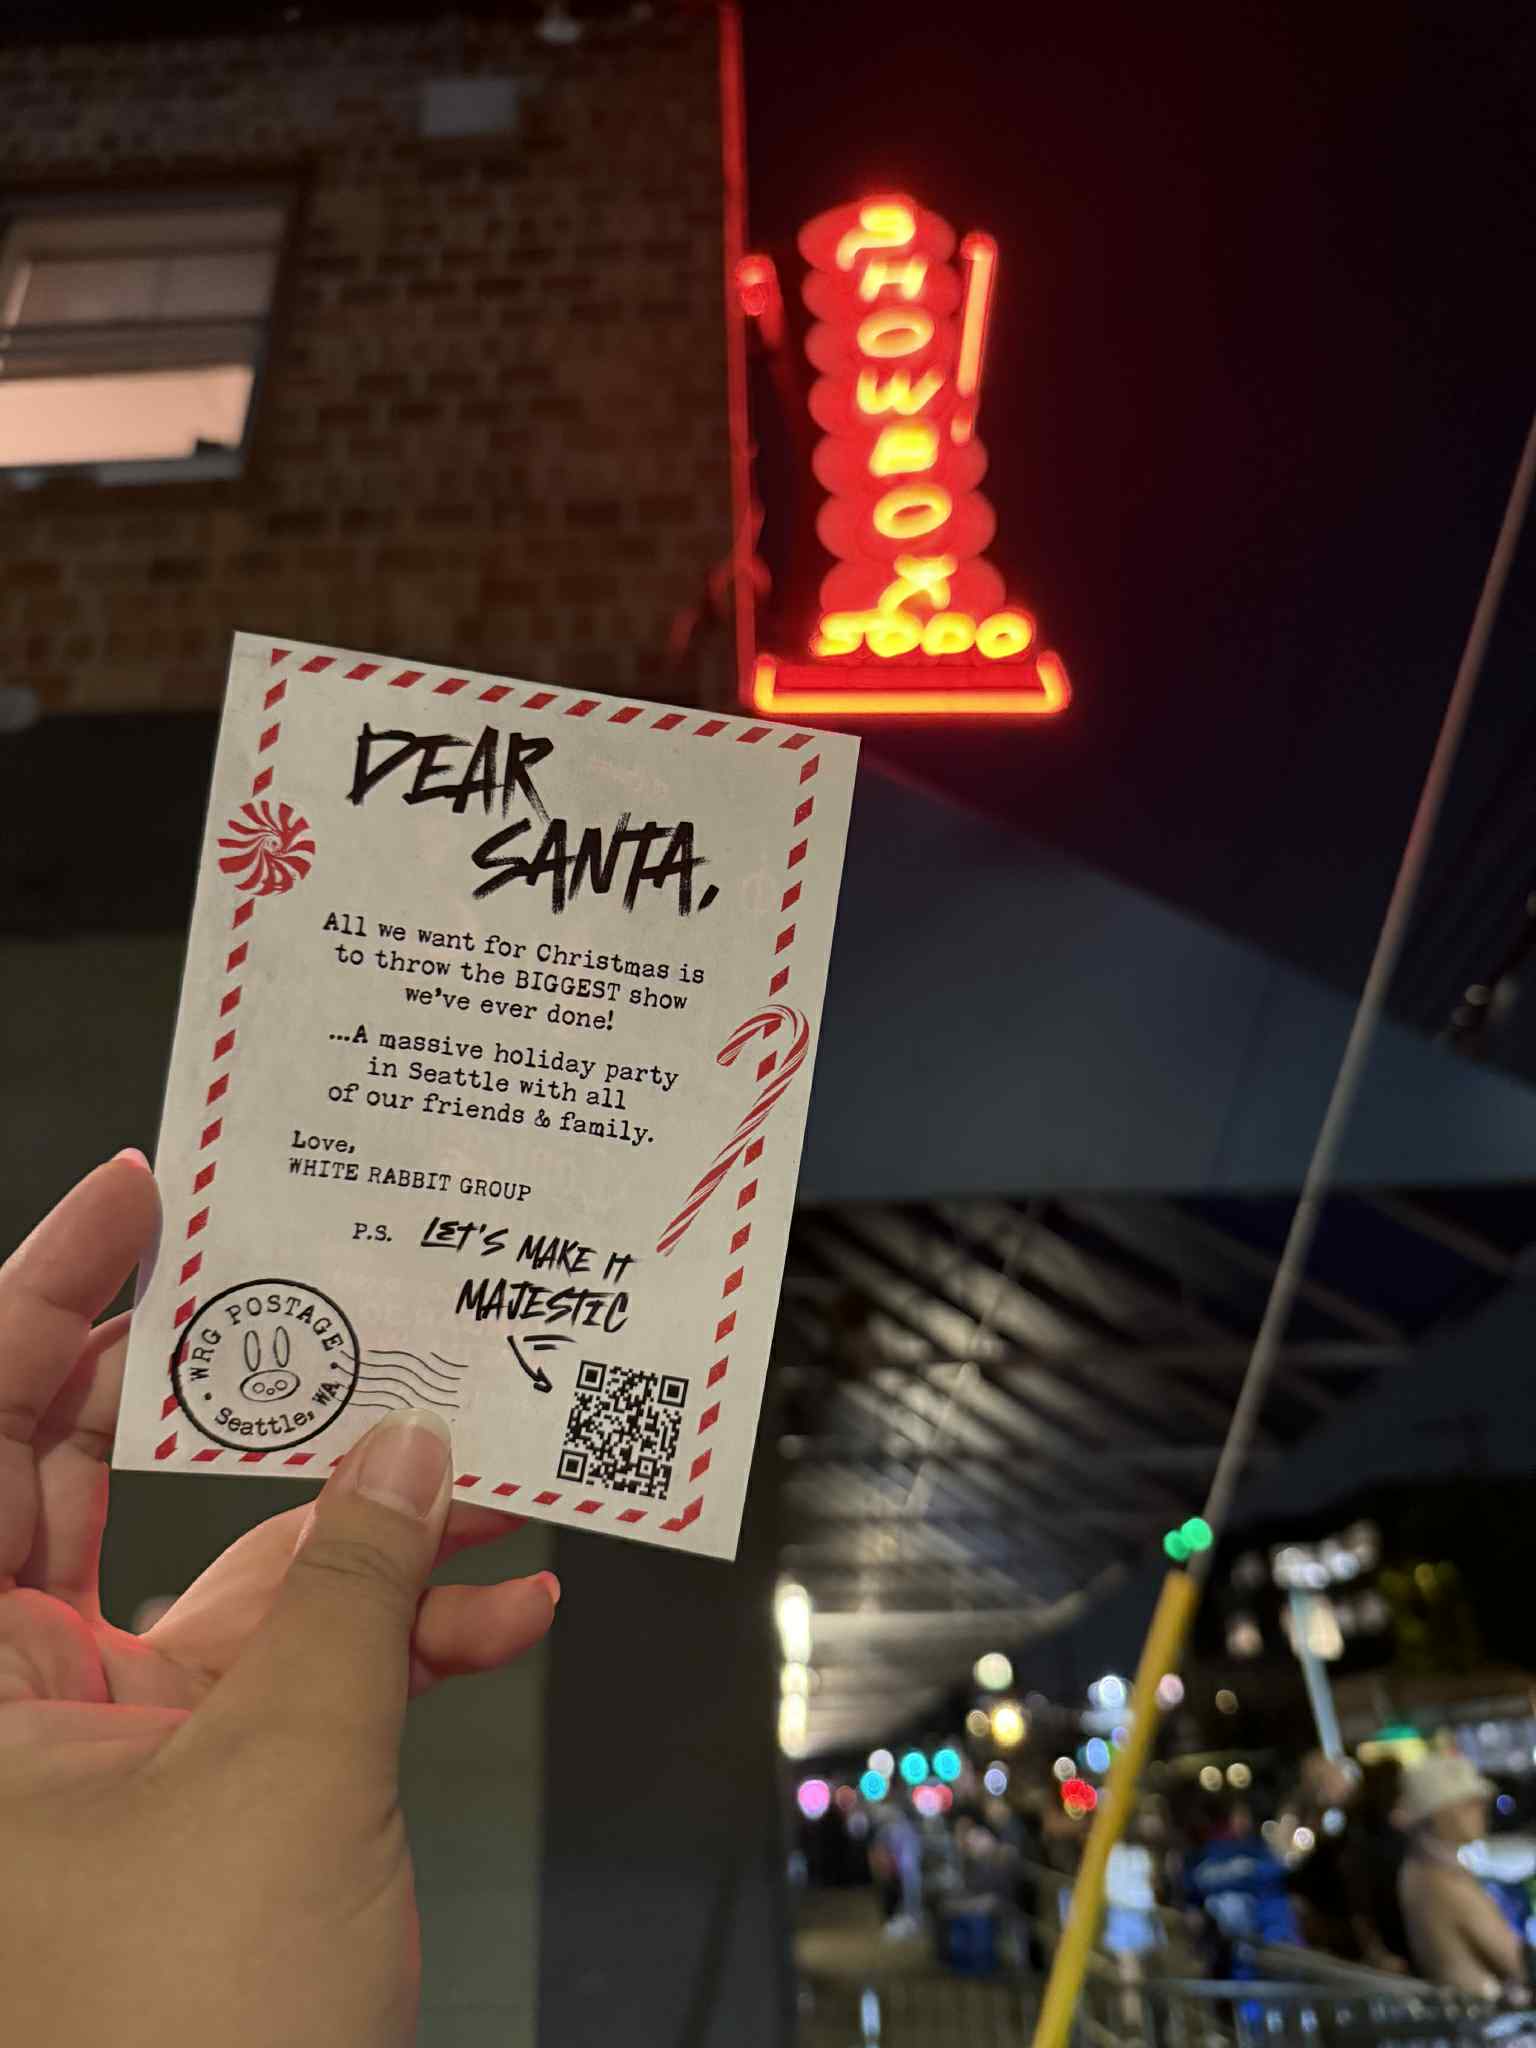 SHOWBOX
SODO
DEAR
SANTA,
All we want for Christmas is
to throw the BIGGEST show
we've ever done!
...A massive holiday party
in Seattle with all
of our friends & family.
Love,
WHITE RABBIT GROUP
P.S. LET'S MAKE IT
MAJESTIC
WRG POSTAGE
Seattle, WA.